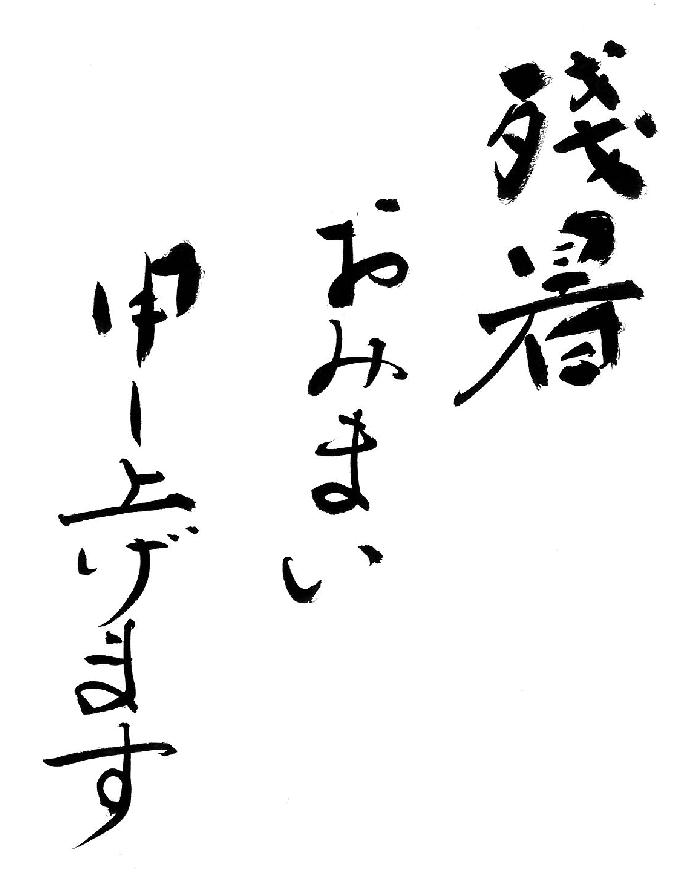 残暑
おみまい
申し上げます